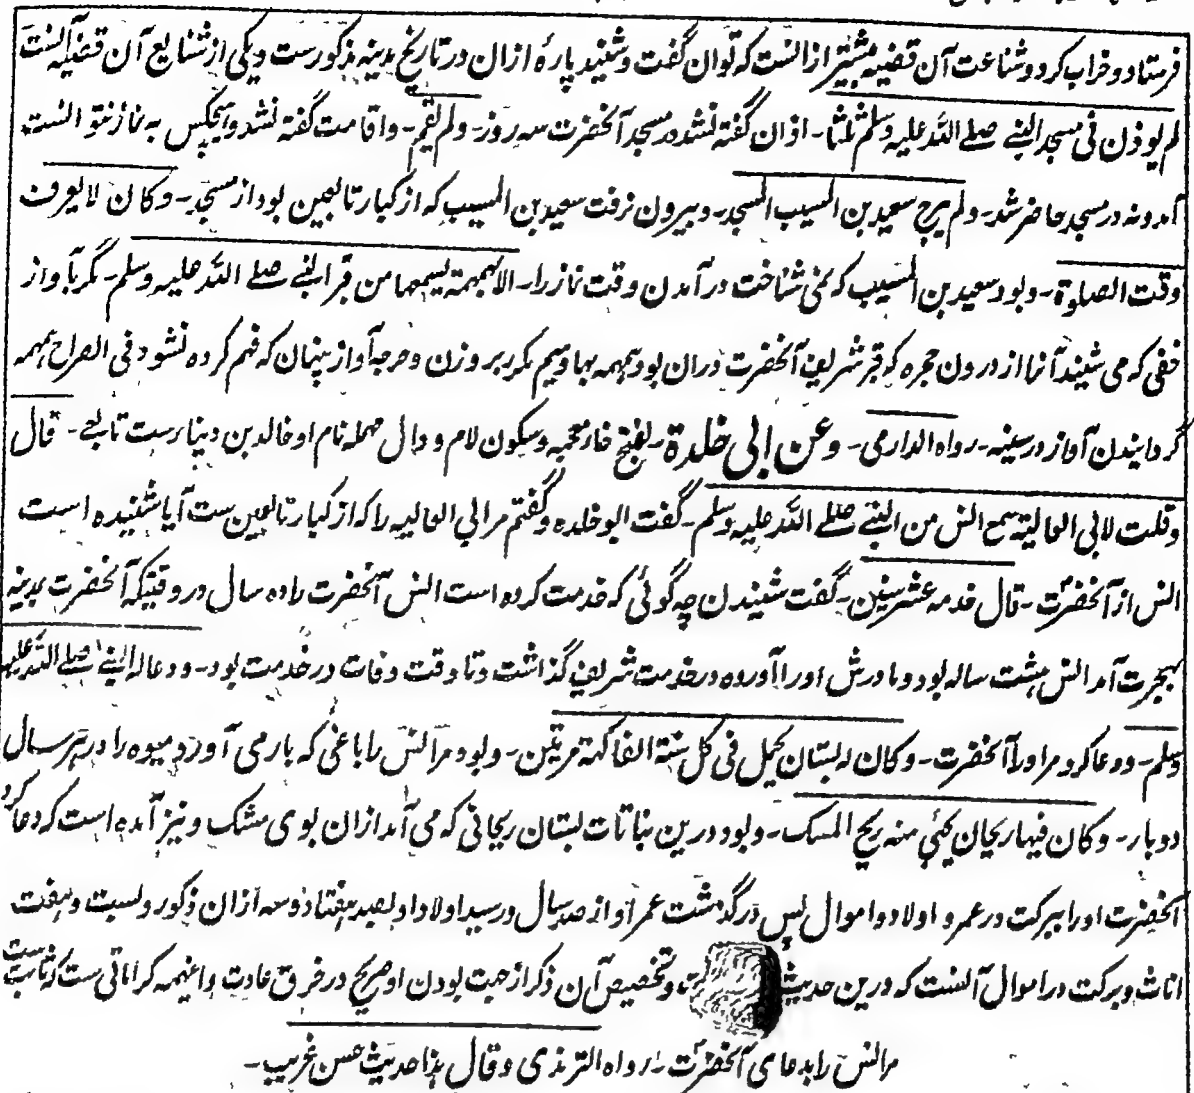 فرستاد و خراب کرد و شناعت آن قضیه بیشتر از انست که توان گفت و شنید پارهٔ ازان در تاریخ مدینه مذکورست و یکی از شنایع آن قضیه آنست
لم یوذن فی مسجد النبی صلے اللہ علیہ وسلم ثلثا۔ اذان گفته نشد در مسجد آنحضرت سه روز۔ ولم یقم۔ و اقامت گفته نشد و هیچکس به نماز نتوانست
آمد و نه در مسجد حاضر شد۔ ولم یبرح سعید بن المسیب المسجد۔ و بیرون نرفت سعید بن المسیب که از کبار تابعین بود از مسجد۔ وکان لا یعرف
وقت الصلوة۔ و بود سعید بن المسیب که نمی شناخت در آمدن وقت نماز را۔ الا بهمهمة یسمعها من قبر النبی صلے اللہ علیہ وسلم۔ مگر بآواز
خفی که می شنید آنرا از درون حجره که قبر شریف آنحضرت دران بود همهمه بها و میم مکرر بر وزن دحرجه آواز پنهان که فهم کرده نشود فی الصراح همهمه
گردانیدن آواز در سینه۔ رواه الدارمی۔ وعن ابی خلدة۔ بفتح خاء معجمه و سکون لام و دال مهمله نام او خالد بن دینار ست تابعی۔ قال
وقلت لابی العالیة سمع انس من النبی صلے اللہ علیہ وسلم۔ گفت ابو خلده و گفتم مر ابی العالیه را که از کبار تابعین ست آیا شنیده است
انس از آنحضرت۔ قال خدمه عشر سنین۔ گفت شنیدن چه گوئی که خدمت کرده است انس آنحضرت را ده سال در وقتیکه آنحضرت بمدینه
بهجرت آمد انس هشت ساله بود و مادرش او را آورده در خدمت شریف گذاشت و تا وقت وفات در خدمت بود۔ ودعا له النبی صلے اللہ علیہ
وسلم۔ و دعا کرد مر او را آنحضرت۔ وکان له بستان یحمل فی کل سنة الفاکهة مرتین۔ و بود مر انس را باغی که بار می آورد میوه را در هر سال
دو بار۔ وکان فیها ریحان یجئ منه ریح المسک۔ و بود درین نباتات بستان ریحانی که می آمد ازان بوی مشک و نیز آمده است که دعا کرد
آنحضرت او را ببرکت در عمر و اولاد و اموال پس درگذشت عمر او از صد سال و رسید اولاد او بصد و هفتاد و سه ازان ذکور و بست و هفت
اناث و برکت در اموال آنست که درین حدیث و تخصیص آن ذکر از جهت بودن او صریح در خرق عادت و اینهمه کراماتی ست که ثابت ست
مر انس را بدعای آنحضرت۔ رواه الترمذی وقال هذا حدیث حسن غریب۔